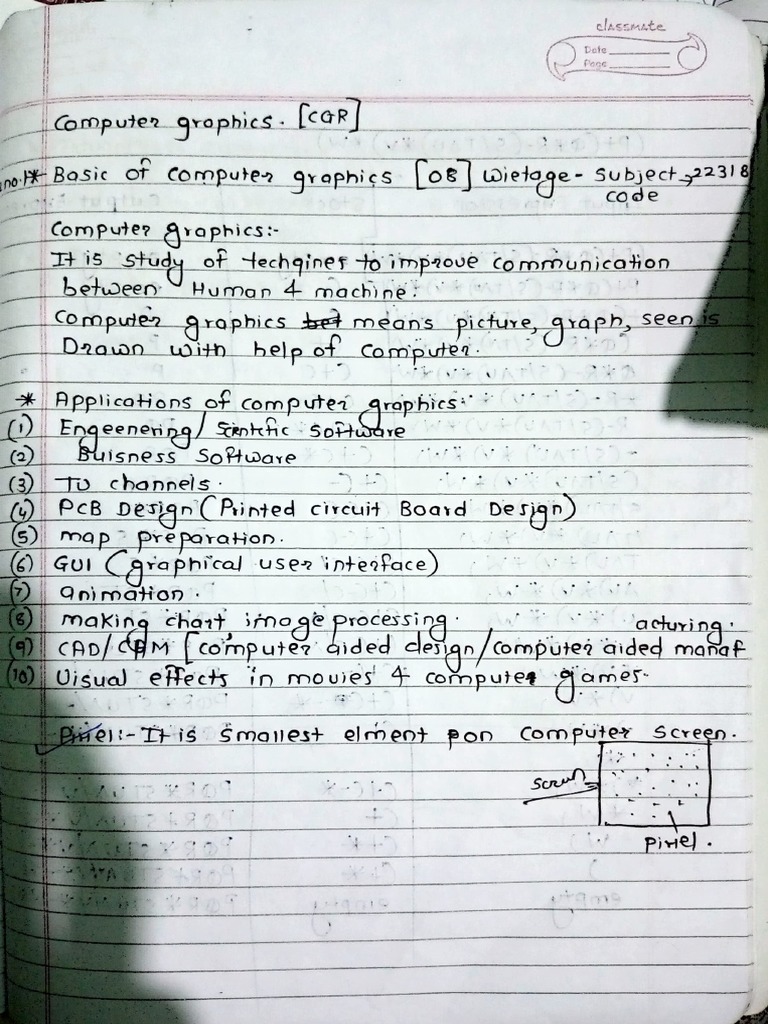 classmate
Date
Page
Computer graphics. [CGR]
no.1* Basic of computer graphics [08] Wietage - Subject → 22318
code
Computer graphics:-
It is study of techqines to improve communication
between Human & machine.
Computer graphics bet means picture, graph, seen is
Drawn with help of computer.
* Applications of computer graphics:
(1) Engeenering/ Scintific software
(2) Buisness Software
(3) TV channels.
(4) PCB Design (Printed circuit Board Design)
(5) map preparation.
(6) GUI (graphical user interface)
(7) animation.
(8) making chart image processing.
(9) CAD/CAM [computer aided design/computer aided manaf
acturing.
(10) Visual effects in movies & computer games.
Pixel:- It is smallest elment on computer screen.
screen
pixel.